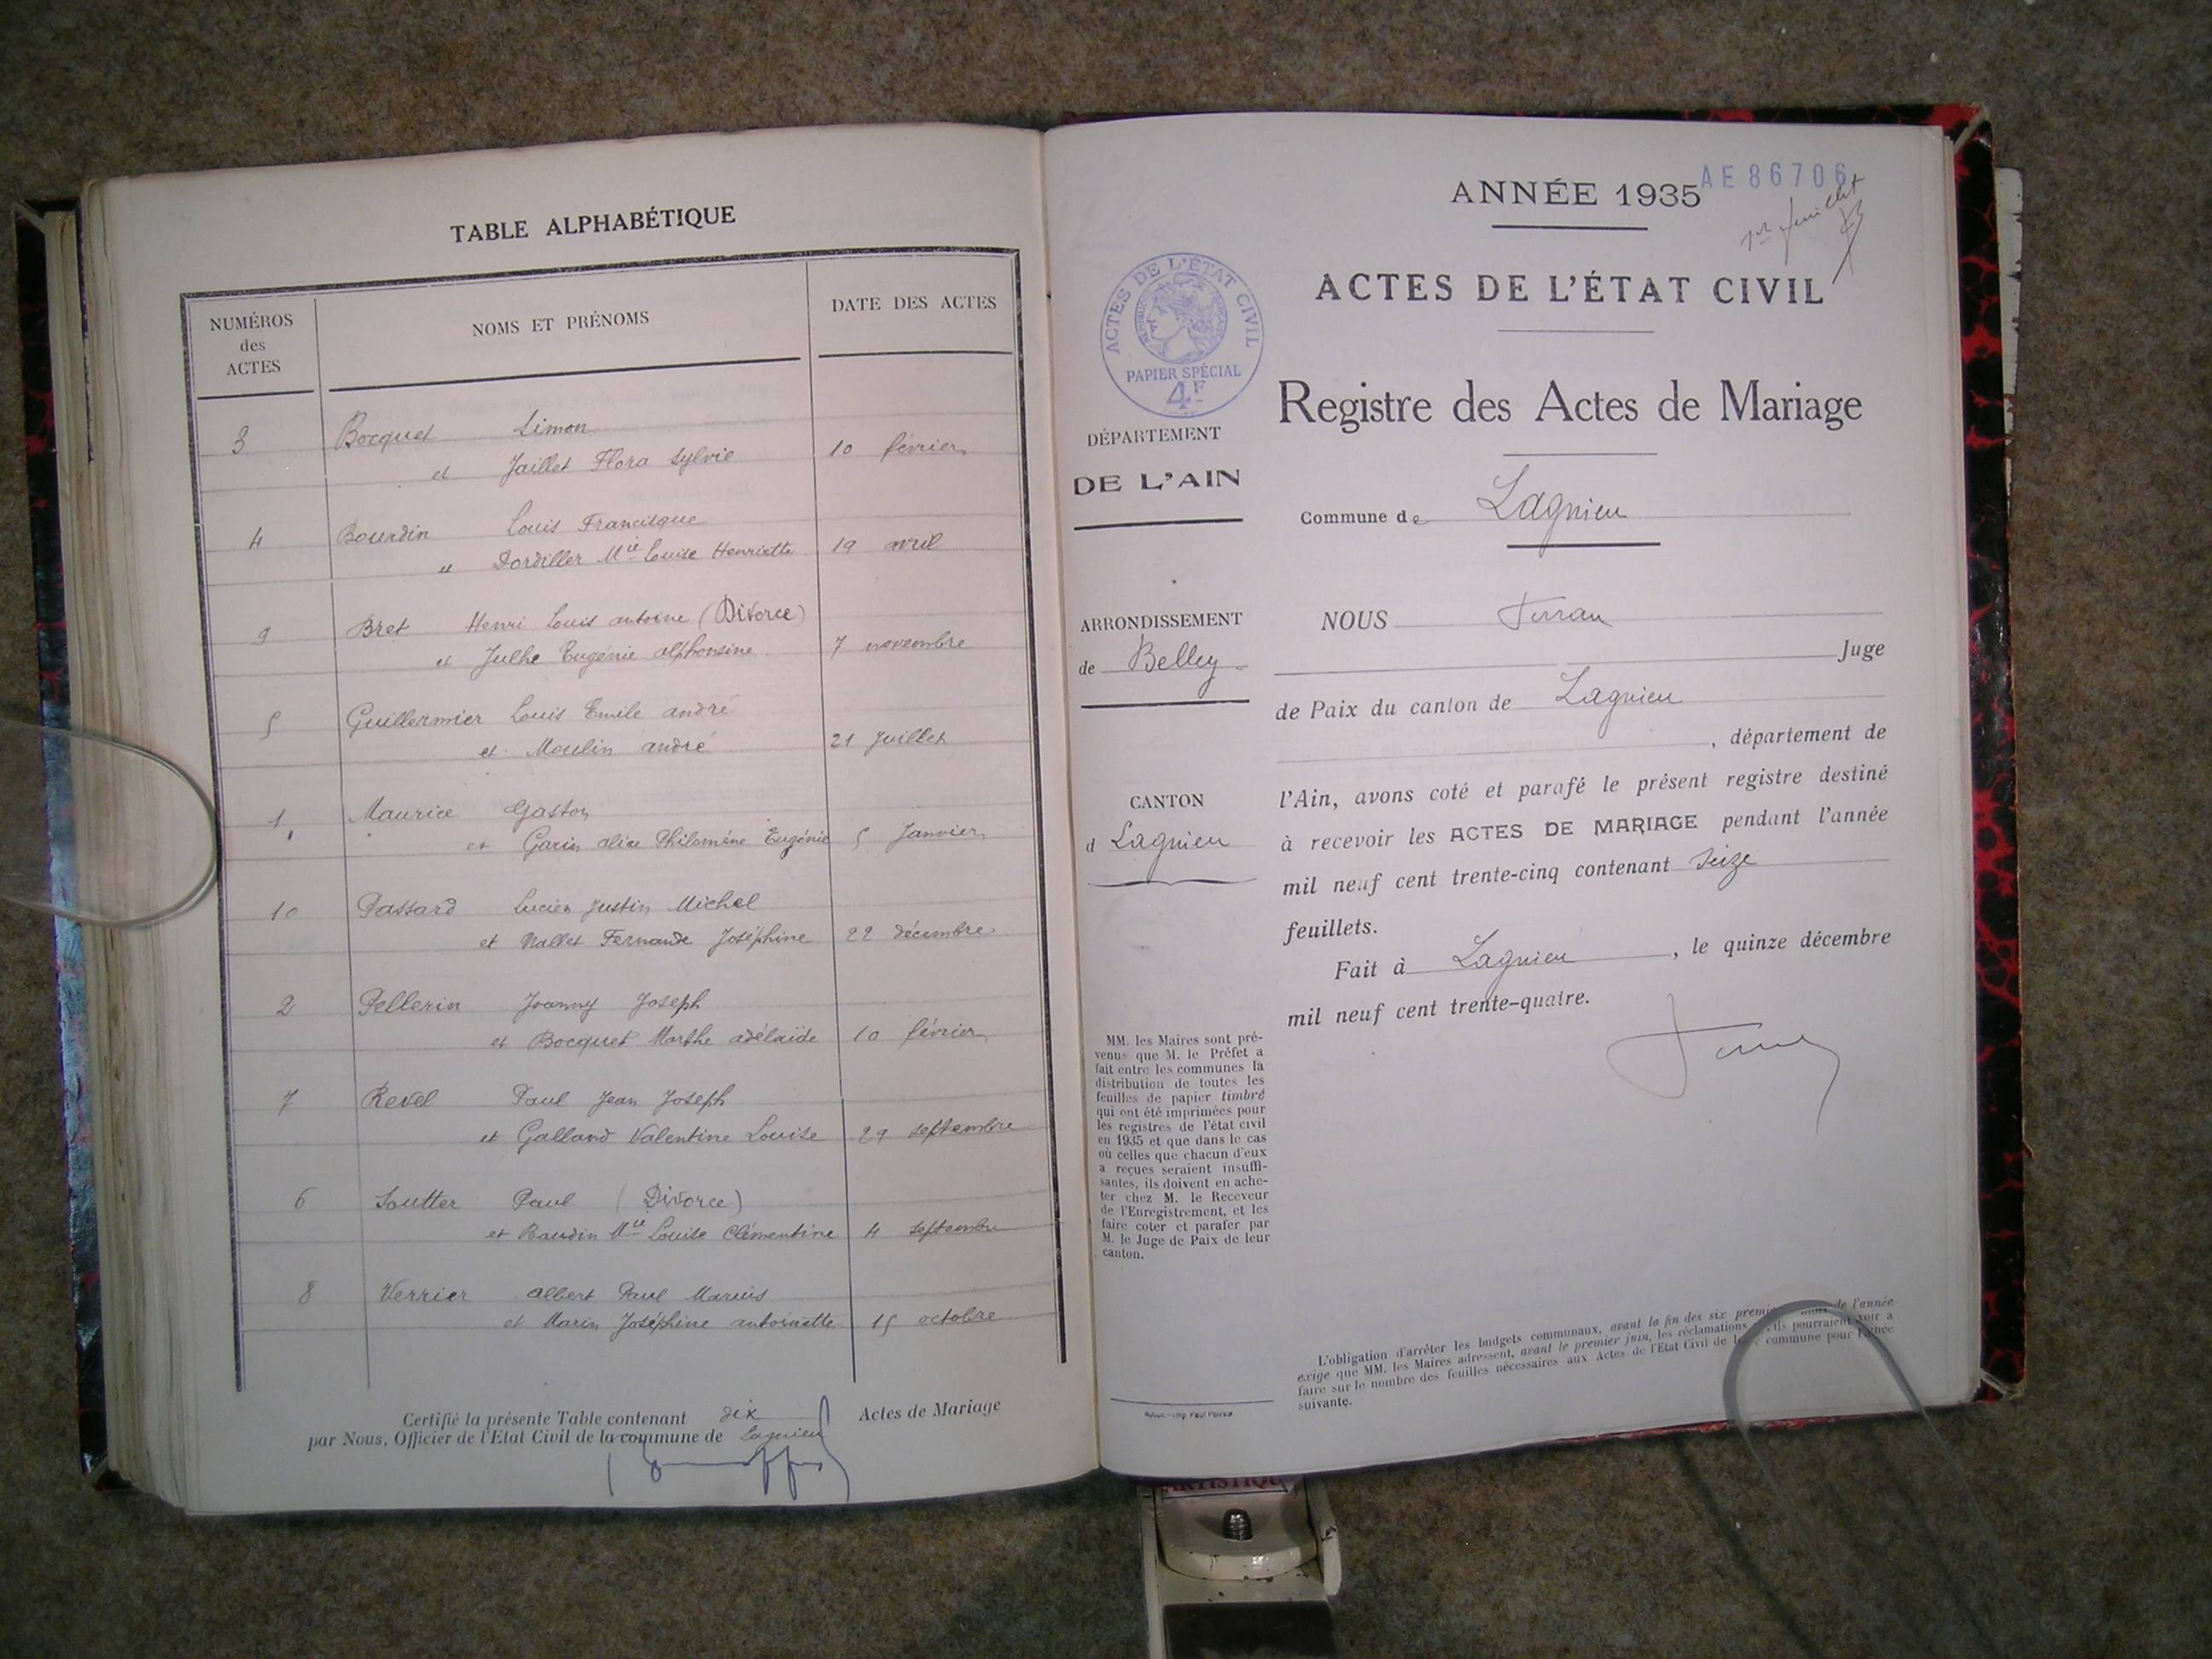 TABLE ALPHABÉTIQUE
NUMÉROS
des
ACTES
NOMS ET PRÉNOMS
DATE DES ACTES
3 Bocquet Simon
et Jaillet Flora Sylvie 10 février
4 Bourdin Louis Francisque
et Dordiller Mie Louise Henriette 19 avril
9 Bret Henri Louis antoine (Divorce)
et Julhe Eugénie alphonsine 7 novembre
5 Guillermier Louis Emile andré
et Moulin andré 21 Juillet
1 Maurice Gaston
et Garin alice Philomène Eugénie 5 Janvier
10 Passard Lucien Justin Michel
et Nallet Fernande Joséphine 22 décembre
2 Pellerin Joanny Joseph
et Bocquet Marthe adélaïde 10 février
7 Revel Paul Jean Joseph
et Galland Valentine Louise 29 septembre
6 Soutter Paul (Divorce)
et Baudin Mie Louise Clémentine 4 septembre
8 Verrier albert Paul Marius
et Marin Joséphine antoinette 15 octobre
Certifié la présente Table contenant dix Actes de Mariage
par Nous, Officier de l'Etat Civil de la commune de Lagnieu
ANNÉE 1935
AE 86706
1er feuillet
ACTES DE L'ÉTAT CIVIL
PAPIER SPÉCIAL
4F
ACTES DE L'ÉTAT CIVIL
Registre des Actes de Mariage
DÉPARTEMENT
DE L'AIN
Commune de Lagnieu
ARRONDISSEMENT
de Belley
CANTON
d Lagnieu
NOUS Ferran
Juge
de Paix du canton de Lagnieu
, département de
l'Ain, avons coté et parafé le présent registre destiné
à recevoir les ACTES DE MARIAGE pendant l'année
mil neuf cent trente-cinq contenant Seize
feuillets.
Fait à Lagnieu, le quinze décembre
mil neuf cent trente-quatre.
MM. les Maires sont pré-
venus que M. le Préfet a
fait entre les communes la
distribution de toutes les
feuilles de papier timbré
qui ont été imprimées pour
les registres de l'état civil
en 1935 et que dans le cas
où celles que chacun d'eux
a reçues seraient insuffi-
santes, ils doivent en ache-
ter chez M. le Receveur
de l'Enregistrement, et les
faire coter et parafer par
M. le Juge de Paix de leur
canton.
L'obligation d'arrêter les budgets communaux, avant la fin des six premiers mois de l'année
exige que MM. les Maires adressent, avant le premier juin, les réclamations qu'ils pourraient avoir à
faire sur le nombre des feuilles nécessaires aux Actes de l'Etat Civil de leur commune pour l'année
suivante.